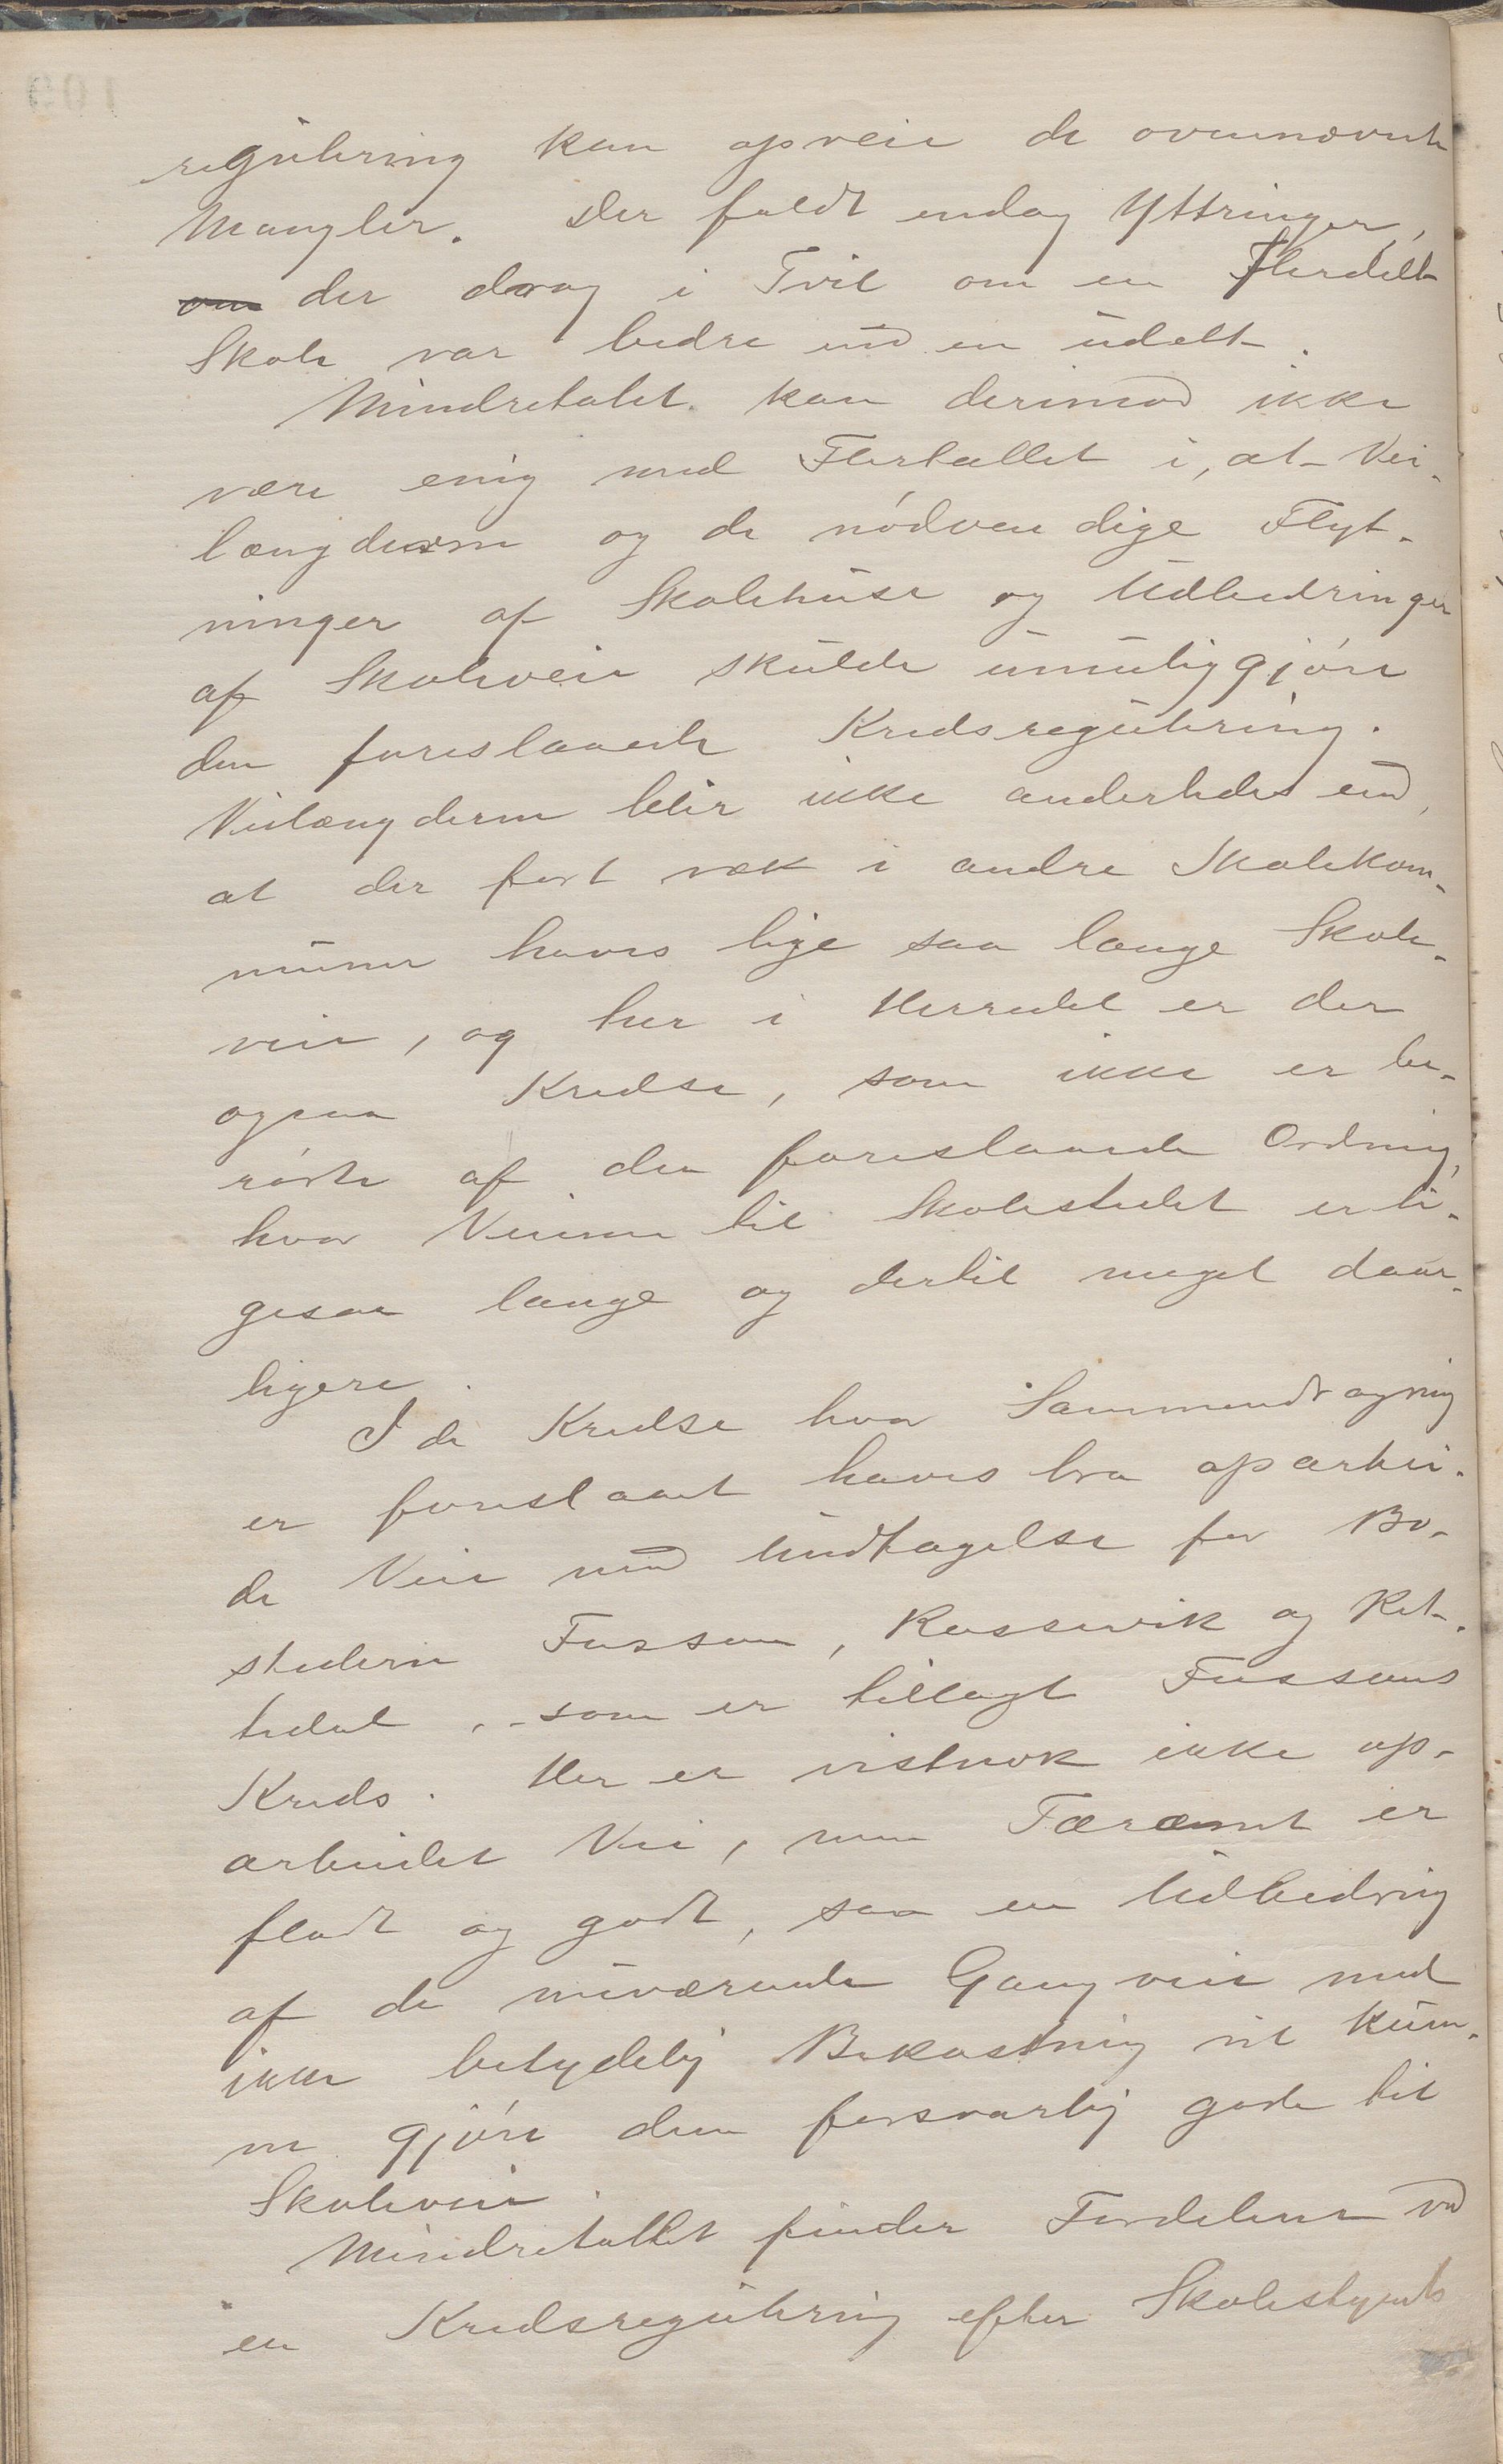 regulering kan opveie de ovennævnte
Mangler. Der faldt endog Yttringer,
om der drog i Tvil om en Flerdelt
Skole var bedre end en udelt.
Mindretalet kan derimod ikke
være enig med Flertallet i, at Vei-
længderne og de nödvendige Flyt-
ninger af Skolehuse og Udbedringer
af Skoleveie skulde umuliggjöre
den foreslaaede Kredsregulering.
Veilængderne blir ikke anderledes end,
at der fort væk i andre Skolekom-
muner haves lige saa lange Skole-
veie, og her i Herredet er der
ogsaa Kredse, som ikke er be-
rörte af den foreslaaede Ordning,
hvor Veiene til Skolestedet er li-
gesaa lange og dertil meget daar-
ligere.
I de Kredse hvor Sammendragning
er foreslaaet haves bra oparbei-
de Veie med Undtagelse for Bo-
stederne Fossan, Rossevik og Ret-
tedal, som er tillagt Fossans
Kreds. Her er vistnok ikke op-
arbeidet Vei, men Terænet er
fladt og godt, saa en Udbedring
af de nuværende Gangveie med
ikke betydelig Bekostning vil kun-
ne gjöre dem forsvarlig gode til
Skoleveie.
Mindretallet finder Fordelene ved
en Kredsregulering efter Skolestyrets
109